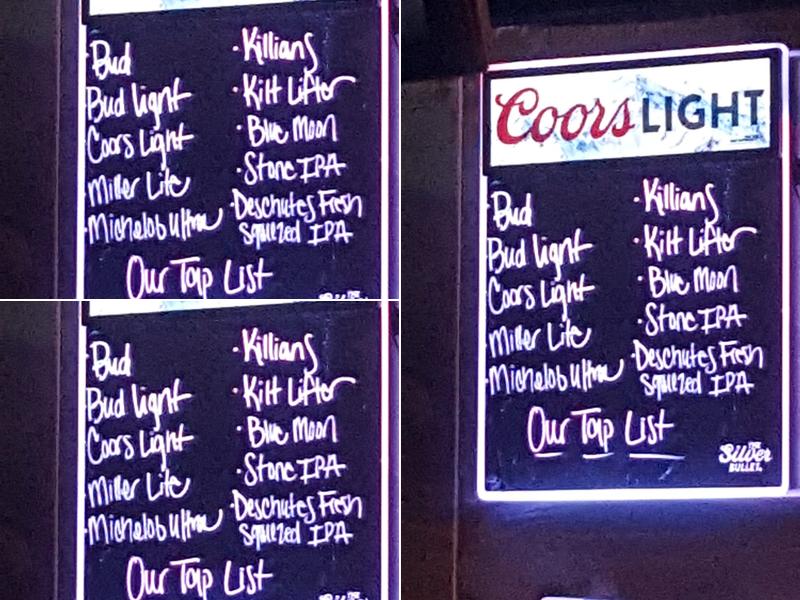 Bud
Bud light
Coors Light
Miller Lite
Michelob Ultra
· Killians
· Kilt Lifter
· Blue Moon
· Stone IPA
· Deschutes Fresh
Squeezed IPA
Our Tap List
Coors LIGHT
Bud
Bud light
Coors Light
Miller Lite
Michelob Ultra
· Killians
· Kilt Lifter
· Blue Moon
· Stone IPA
· Deschutes Fresh
Squeezed IPA
Our Tap List
THE
Silver
BULLET.
Bud
Bud light
Coors Light
Miller Lite
Michelob Ultra
· Killians
· Kilt Lifter
· Blue Moon
· Stone IPA
· Deschutes Fresh
Squeezed IPA
Our Tap List